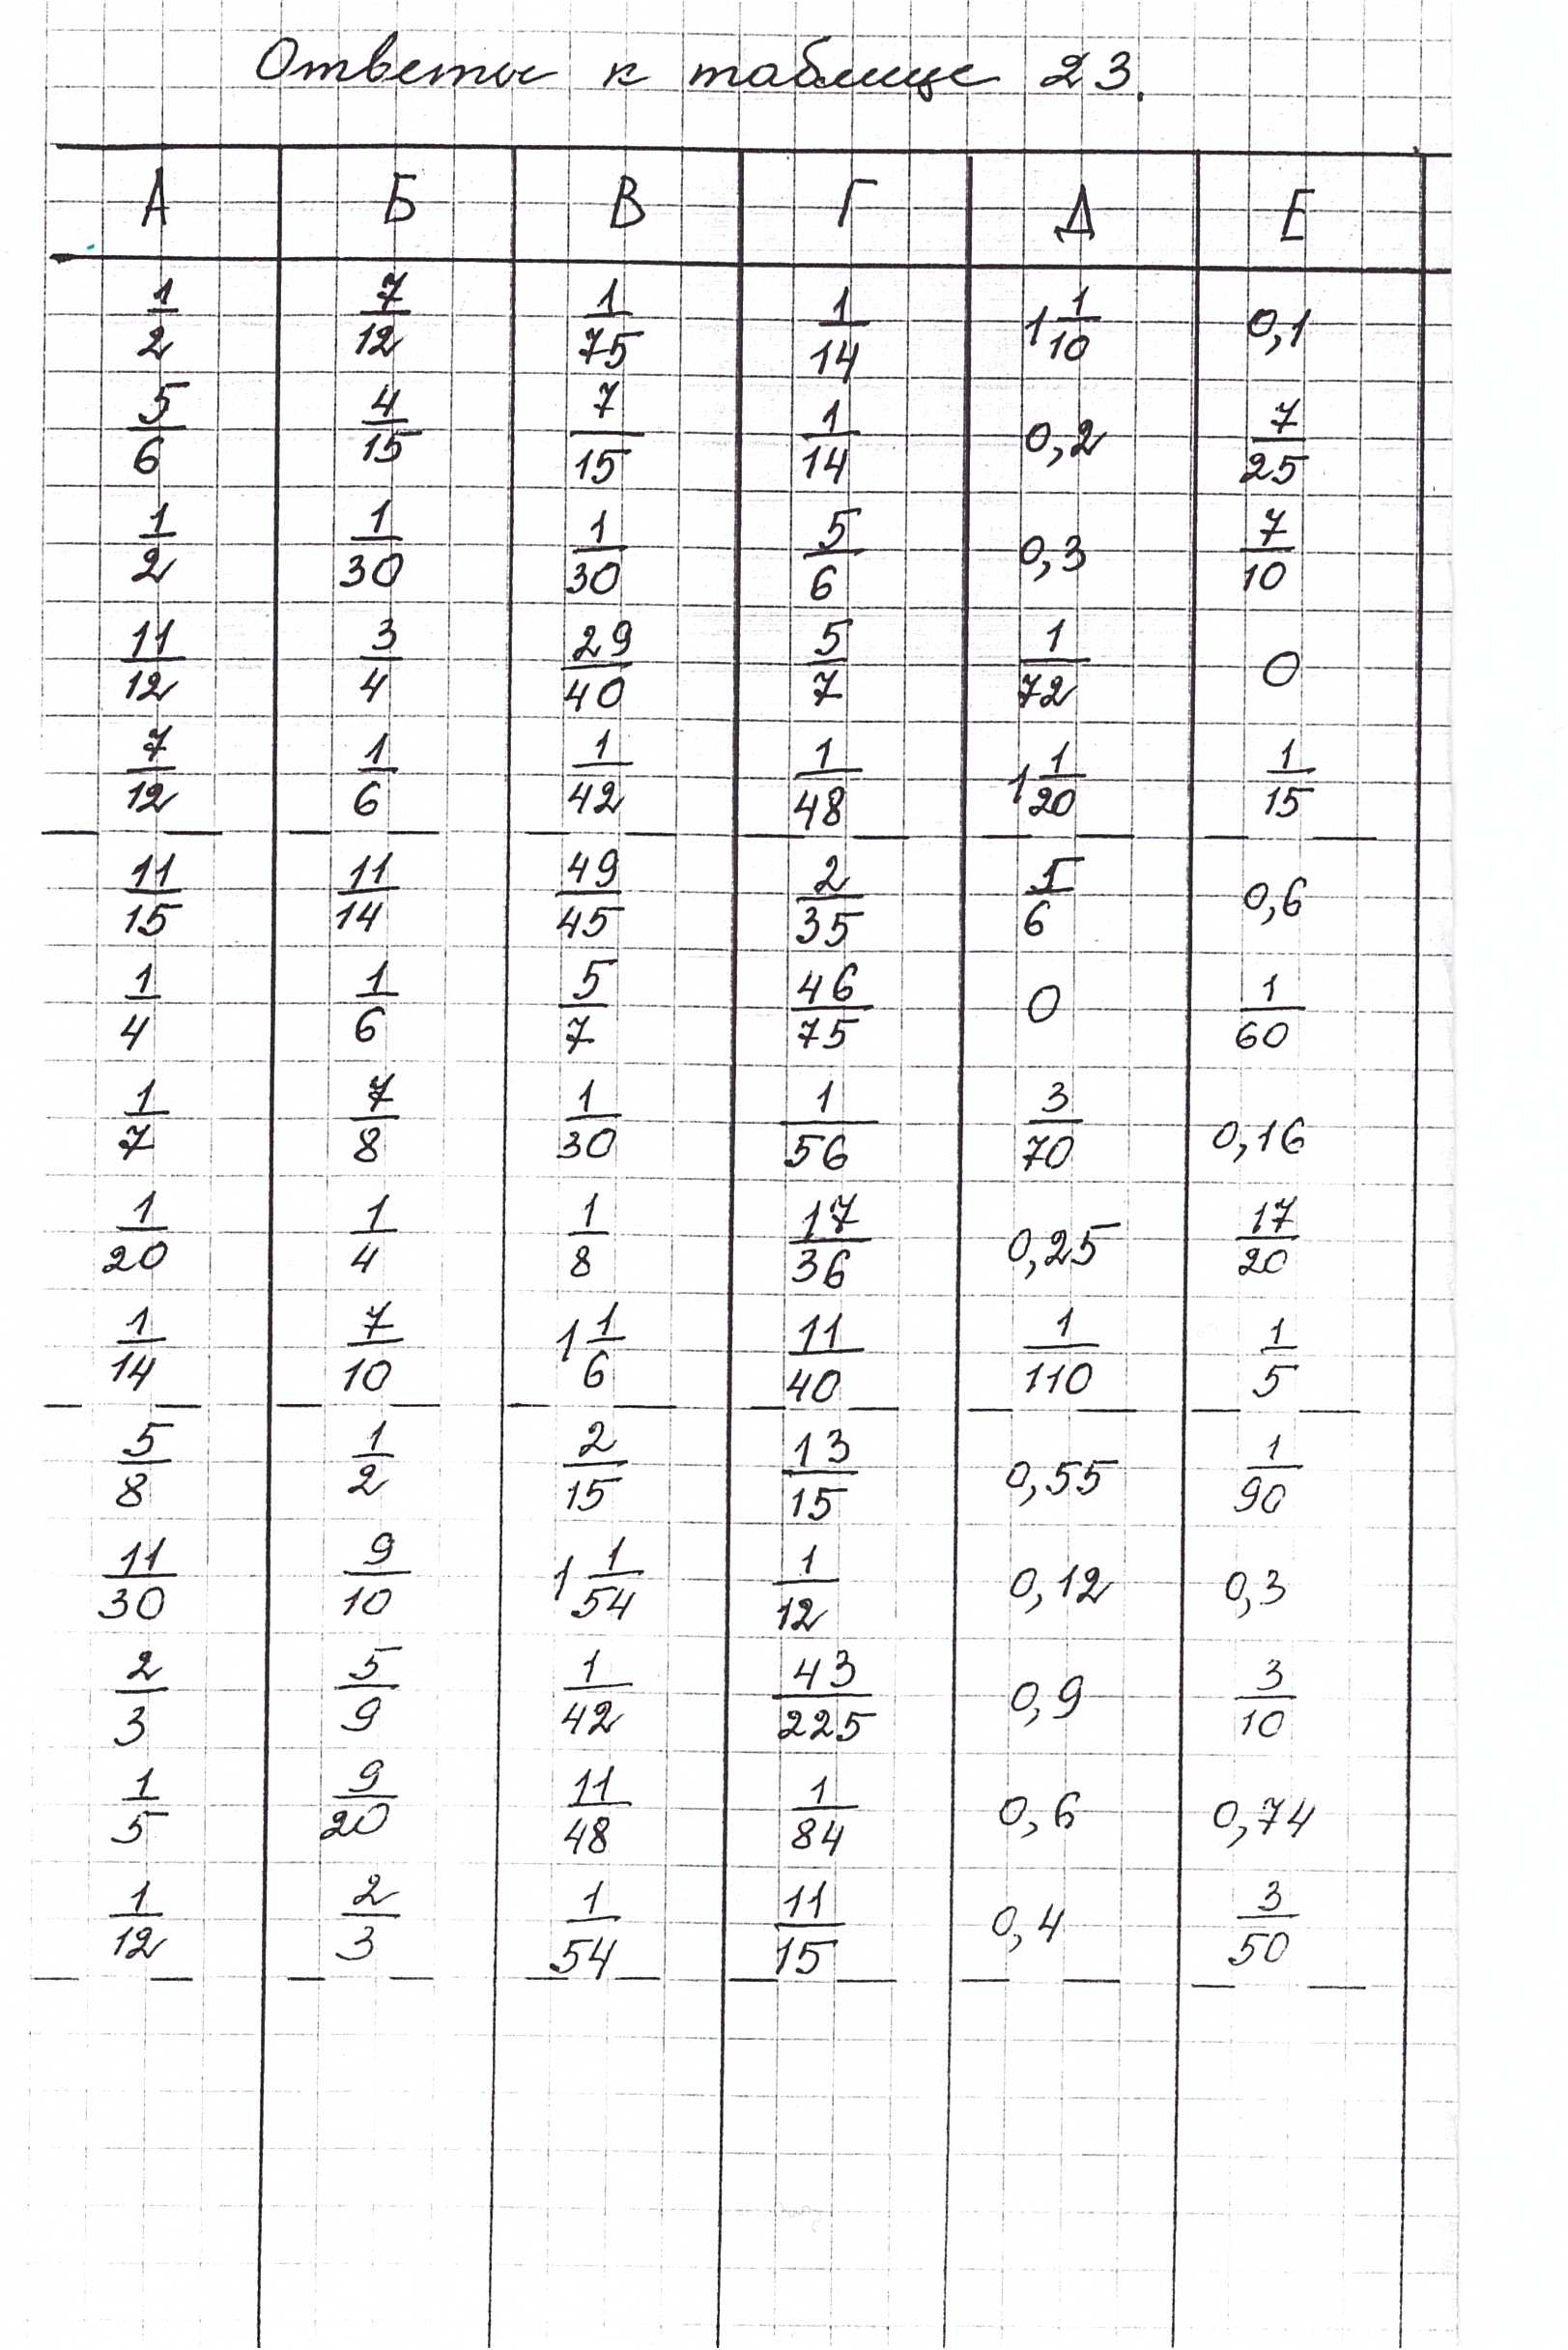 Ответы к таблице 23.
А Б В Г Д Е
1/2 7/12 1/75 1/14 1 1/10 0,1
5/6 4/15 7/15 1/14 0,2 7/25
1/2 1/30 1/30 5/6 0,3 7/10
11/12 3/4 29/40 5/7 1/72 0
7/12 1/6 1/42 1/48 1 1/20 1/15
11/15 11/14 49/45 2/35 5/6 0,6
1/4 1/6 5/7 46/75 0 1/60
1/7 7/8 1/30 1/56 3/70 0,16
1/20 1/4 1/8 17/36 0,25 17/20
1/14 7/10 1 1/6 11/40 1/110 1/5
5/8 1/2 2/15 13/15 0,55 1/90
11/30 9/10 1 1/54 1/12 0,12 0,3
2/3 5/9 1/42 43/225 0,9 3/10
1/5 9/20 11/48 1/84 0,6 0,74
1/12 2/3 1/54 11/15 0,4 3/50